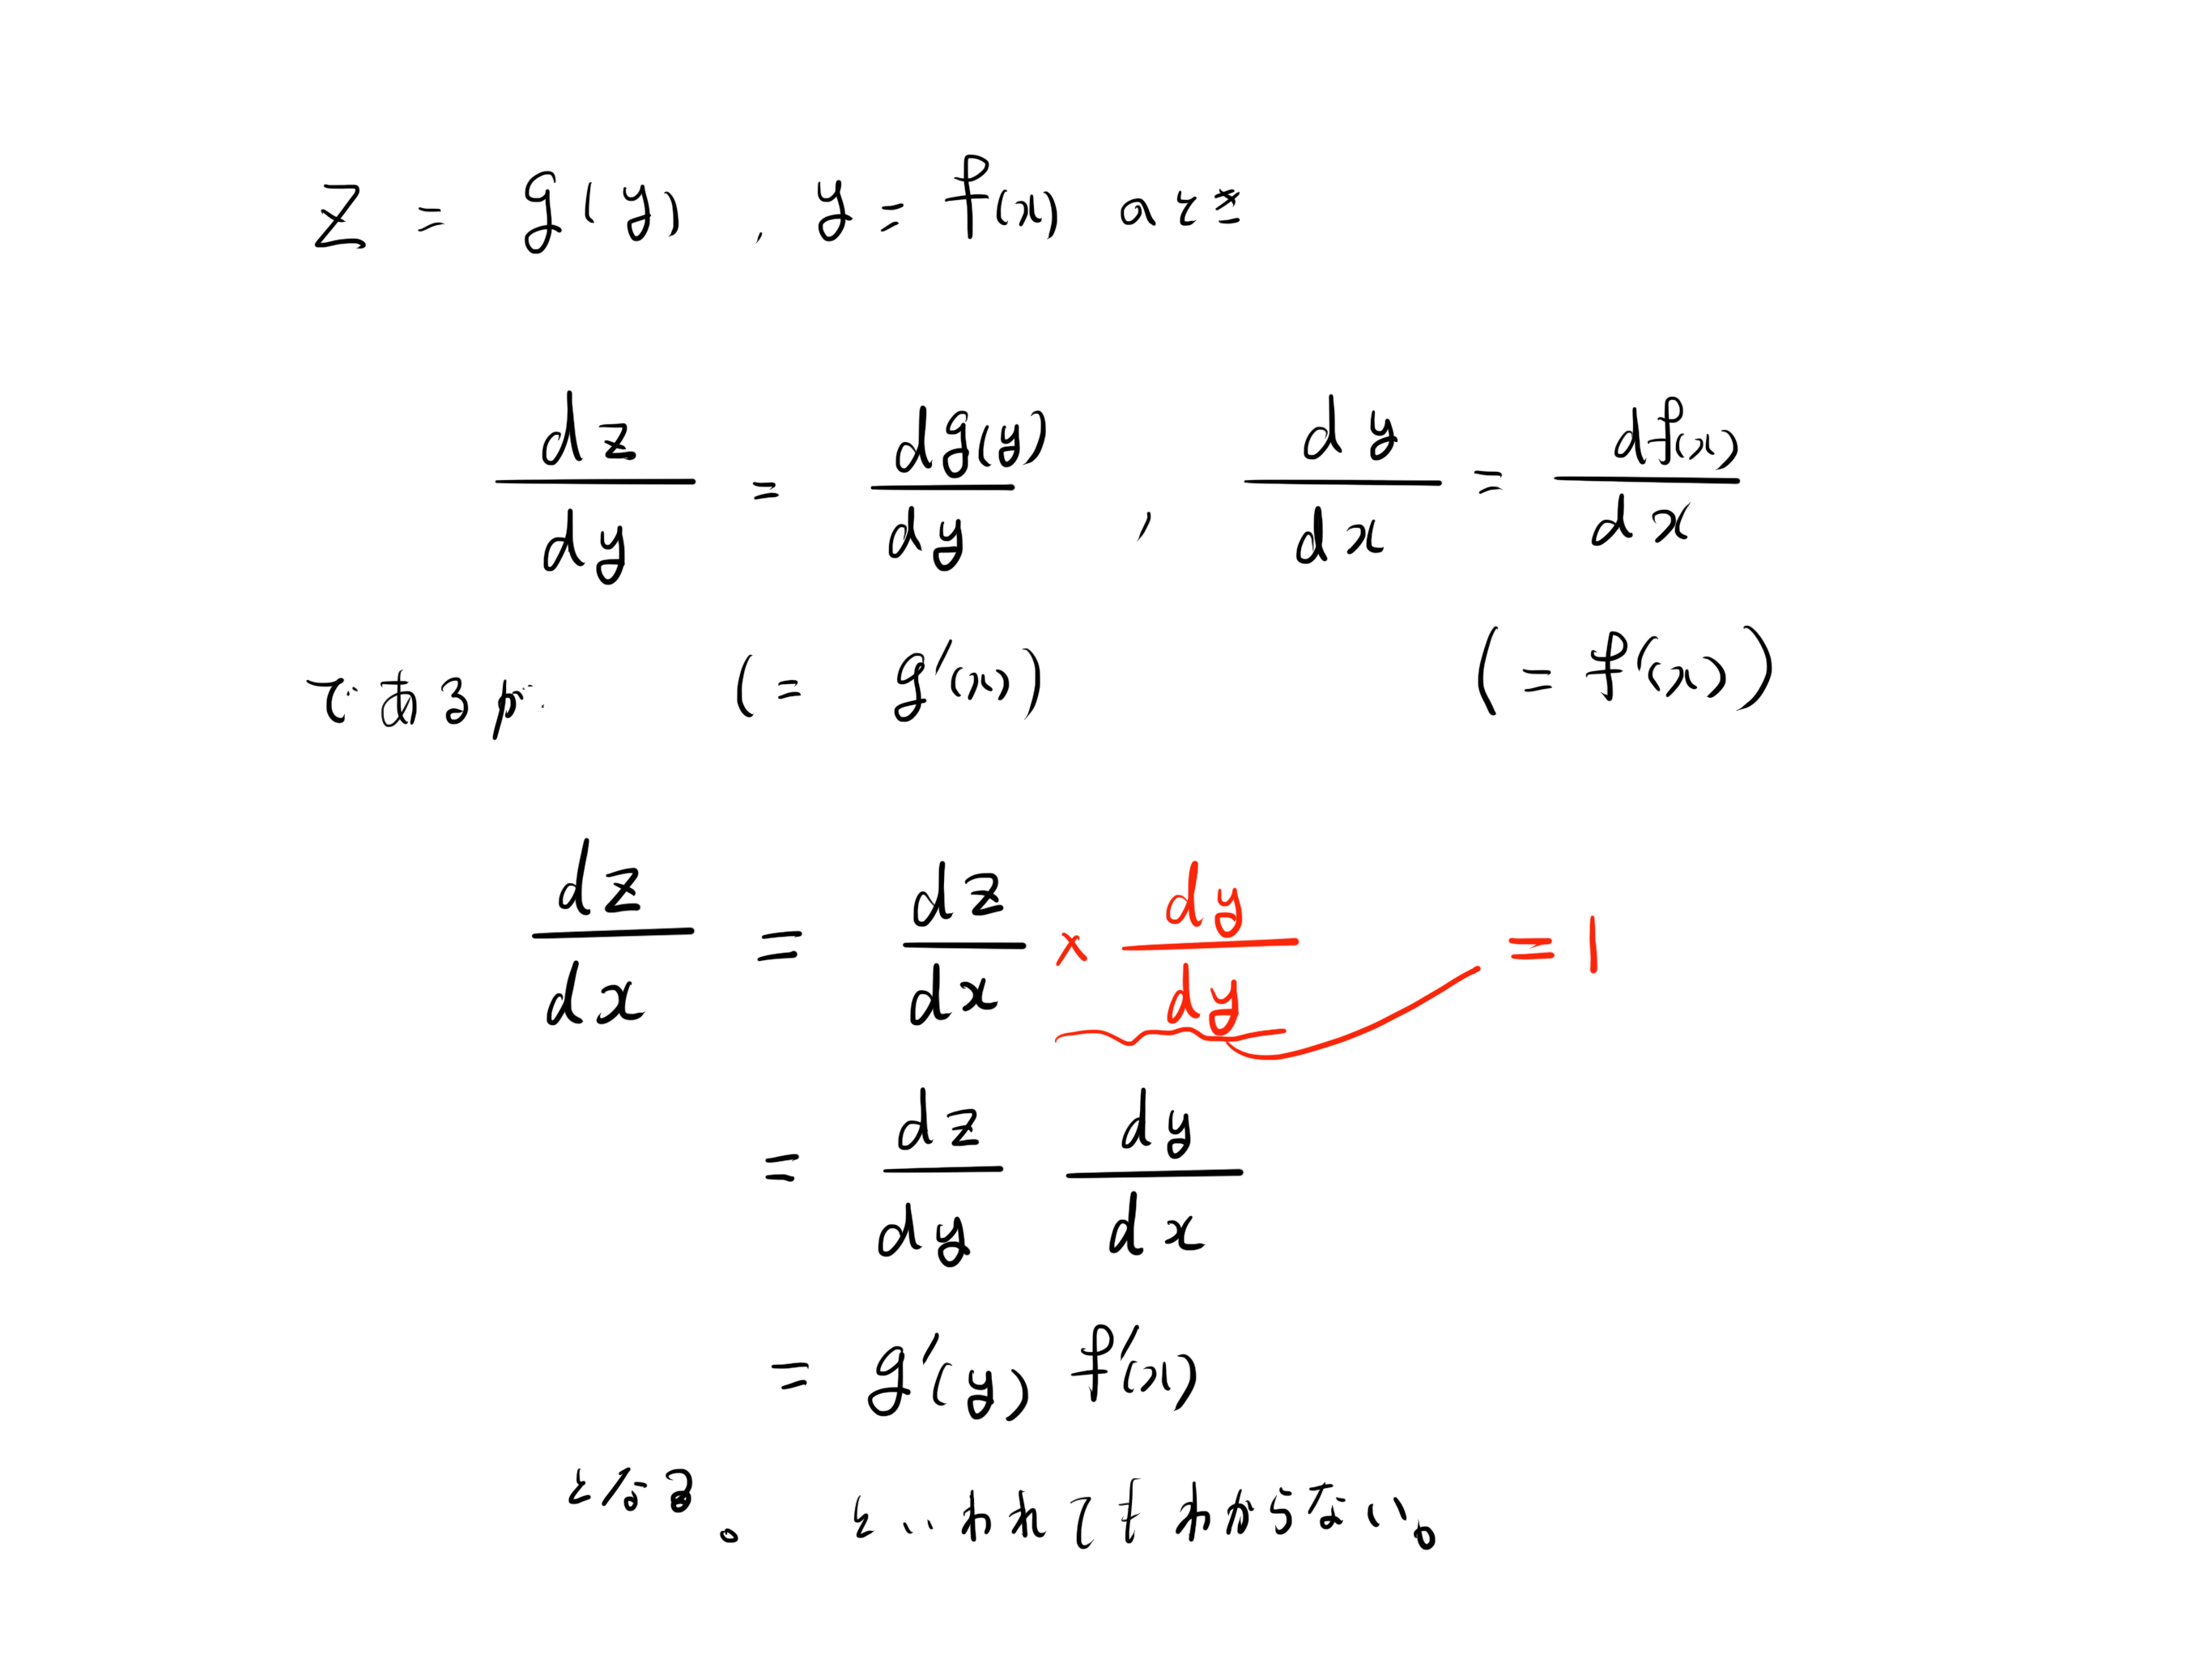 z = g(y) , y = f(x) のとき
dz/dy = dg(y)/dy , dy/dx = df(x)/dx
であるが (= g'(x)) (= f'(x))
dz/dx = dz/dx × dy/dy = 1
= dz/dy dy/dx
= g'(y) f'(x)
となる。 といわれてもわからない。